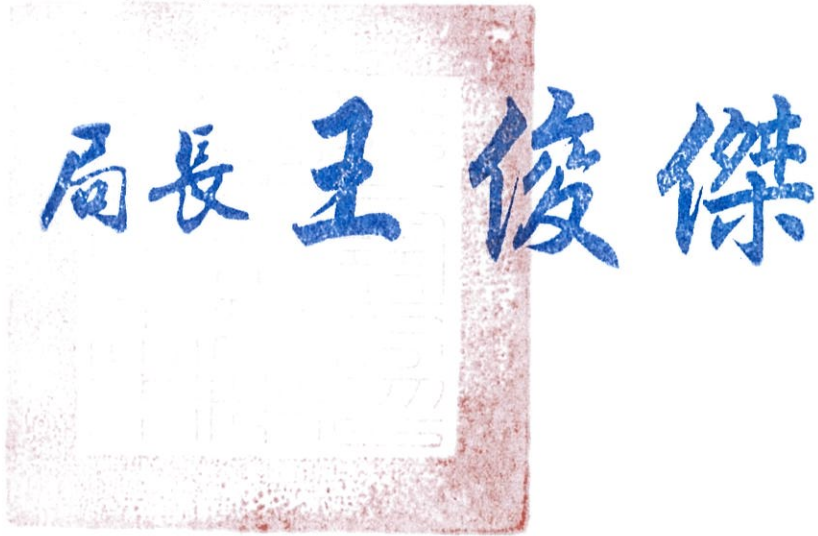 局長王俊傑